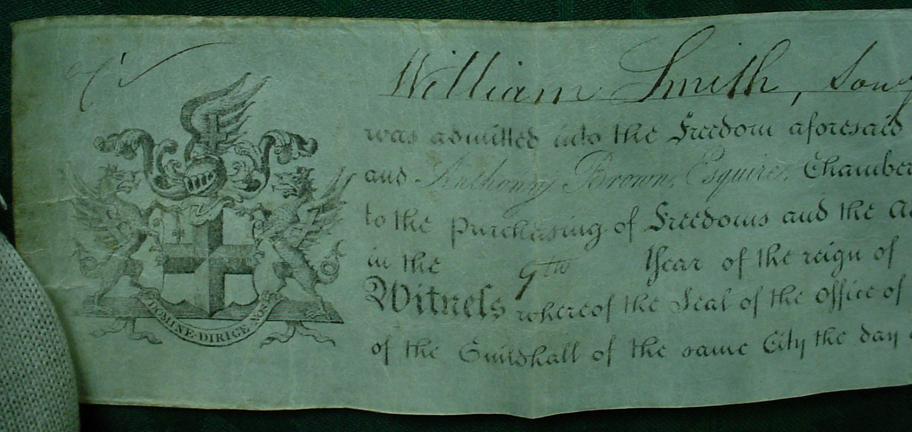 William Smith, Son of
was admitted into the Freedom aforesaid
and Anthony Brown, Esquire, Chamber
to the purchasing of Freedoms and the
in the 9th Year of the reign of
Witness whereof the Seal of the Office of
of the Guildhall of the same City the day
DOMINE DIRIGE NOS